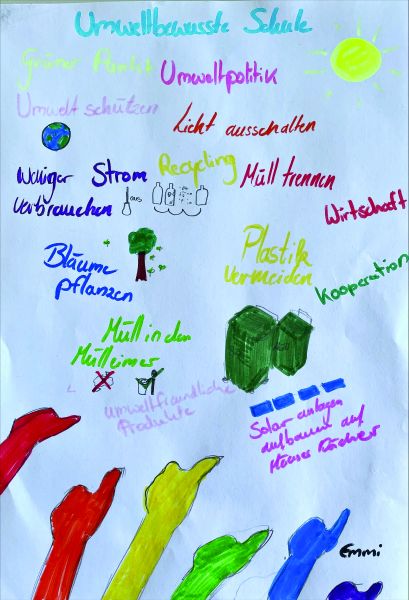 Umweltbewusste Schule
Grüner Punkt
Umweltpolitik
Umwelt schützen
Licht ausschalten
Recycling
Weniger Strom
verbrauchen
aus
Müll trennen
Wirtschaft
Bläume
pflanzen
Plastik
vermeiden
Kooperation
Müll in den
Mülleimer
umweltfreundliche
Produkte
Solar anlagen
aufbauen auf
Häuser Dächer
Emmi